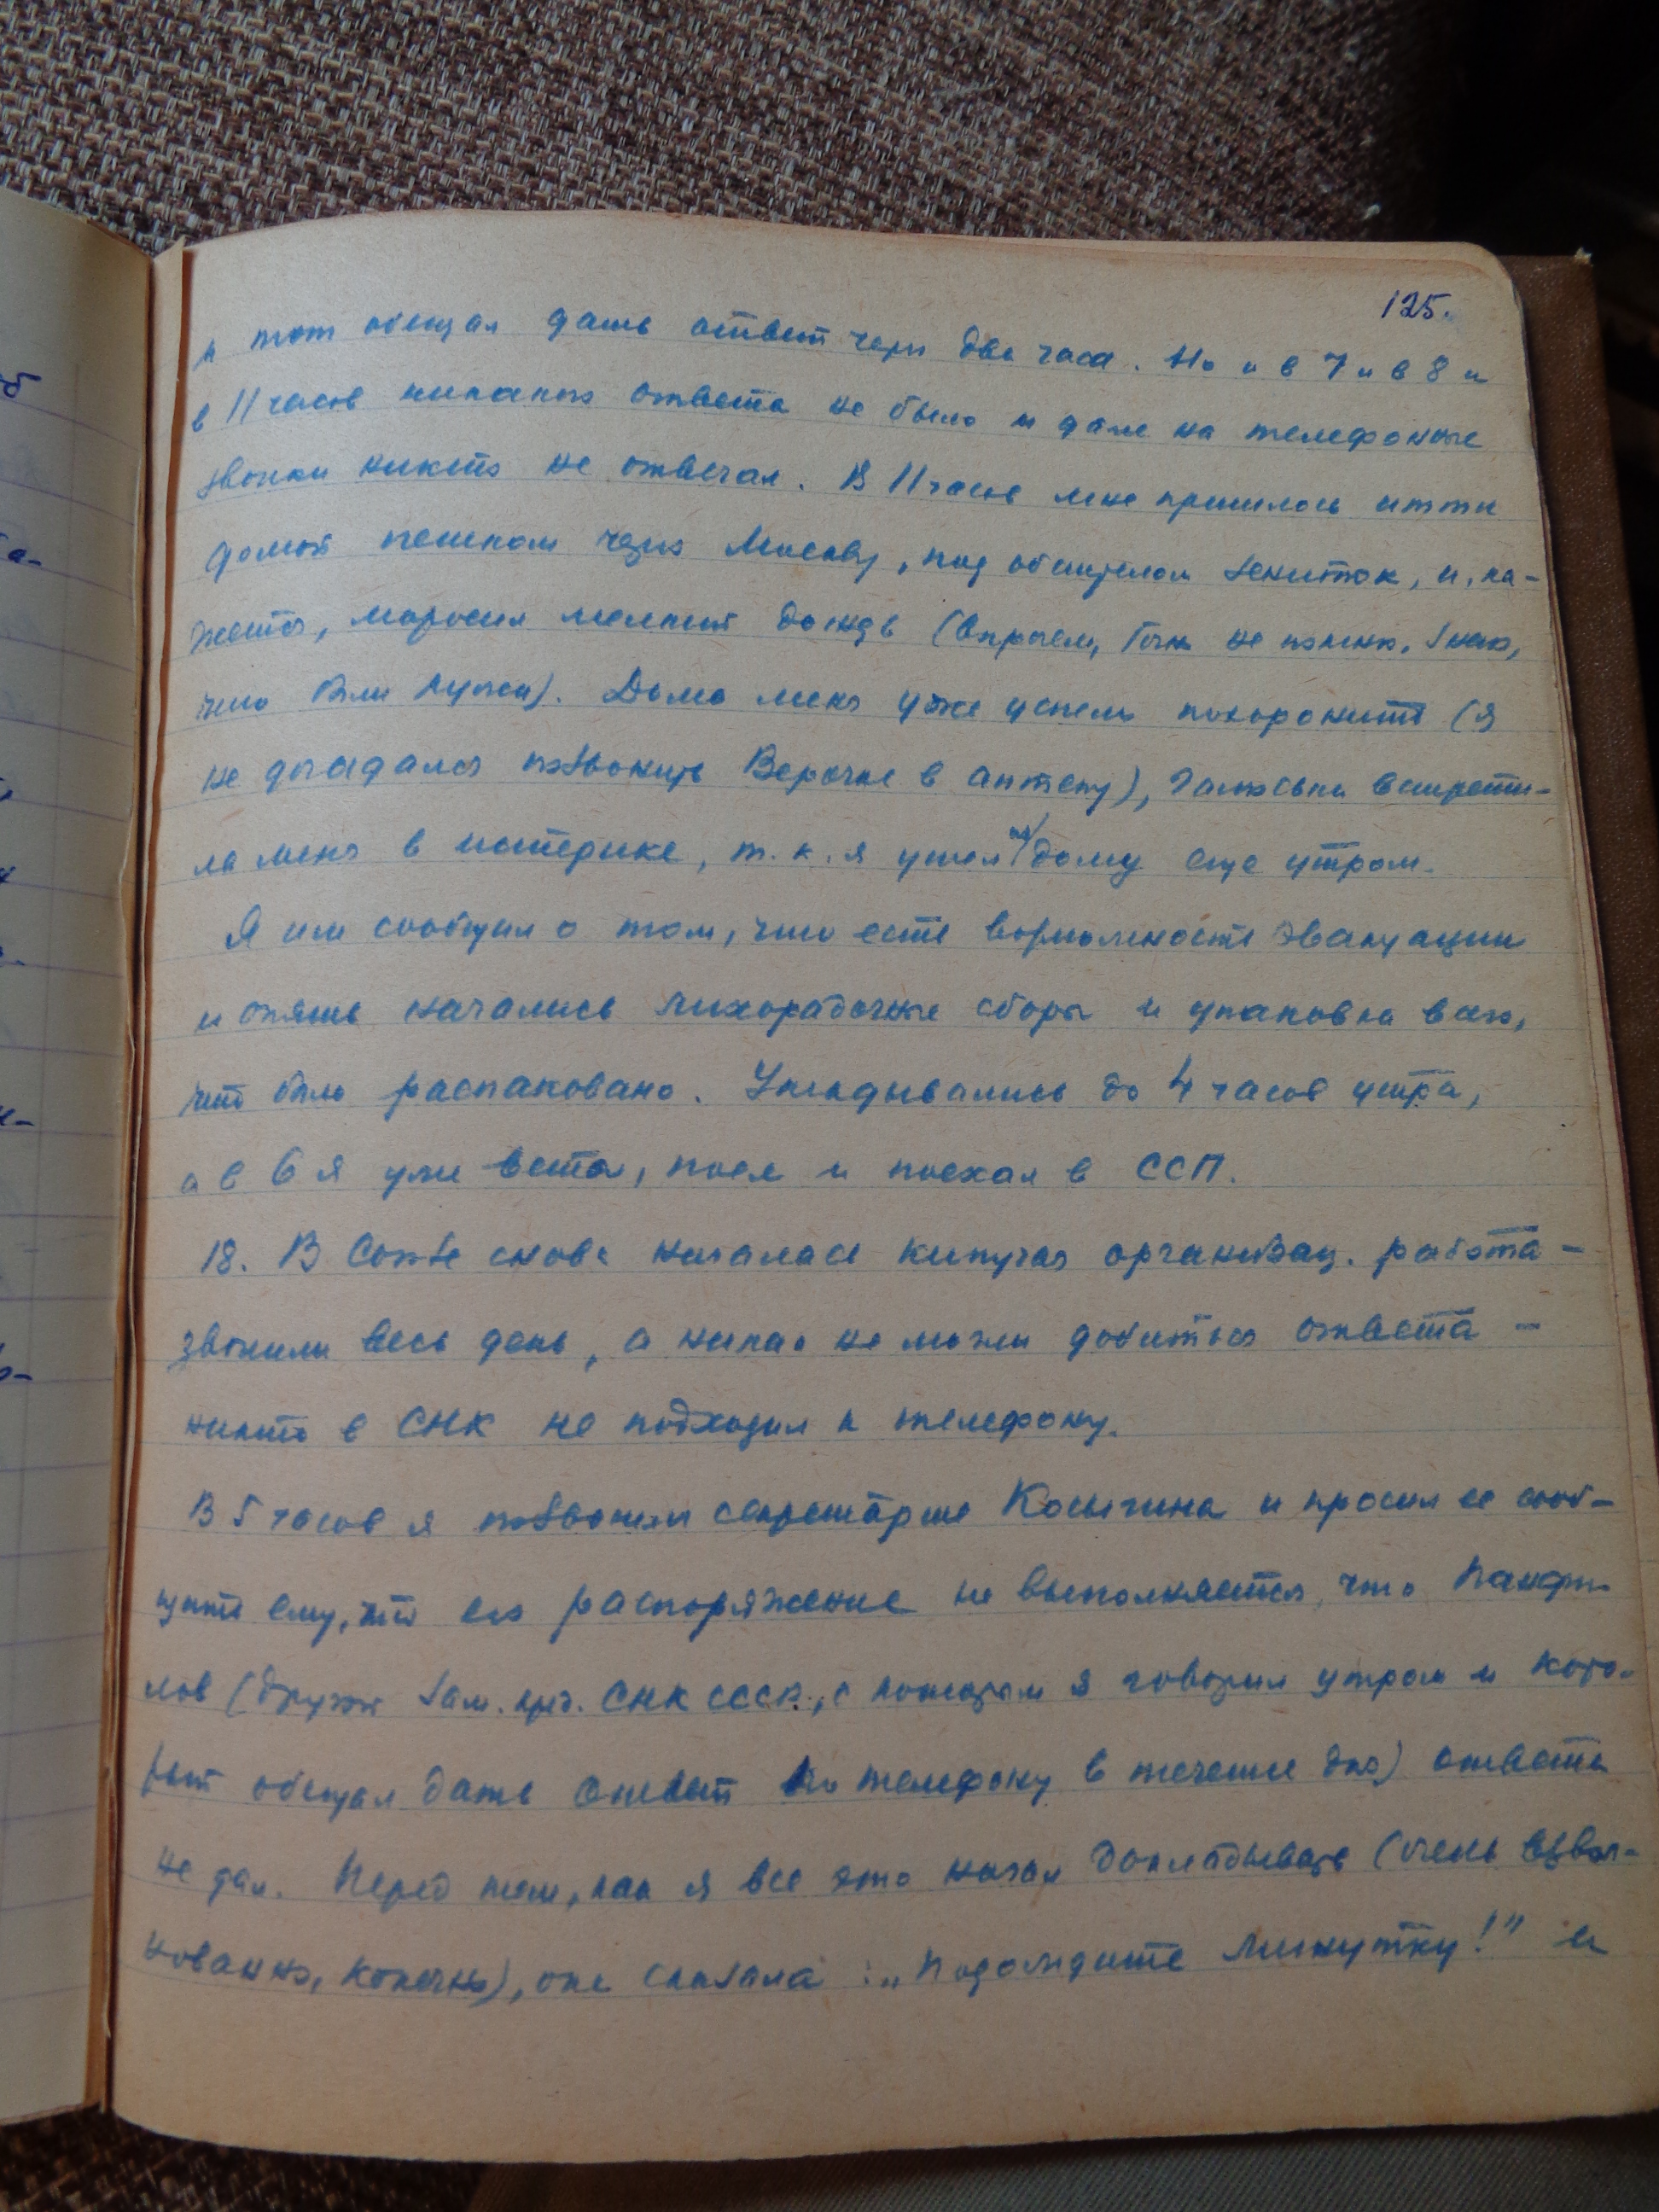 125.
и тот обещал дать ответ через два часа. Но и в 7 и в 8 и
в 11 часов никакого ответа не было и даже на телефонные
звонки никто не отвечал. В 11 часов мне пришлось итти
домой пешком через Москву, под обстрелом зениток, и, ка-
жется, моросил мелкий дождь (впрочем, точно не помню. Знаю,
что были лужи). Дома меня уже успели похоронить (я
не догадался позвонить Верочке в аптеку), Галюська встрети-
ла меня в истерике, т. к. я ушел из дому еще утром.
Я им сообщил о том, что есть возможность эвакуации
и опять начались лихорадочные сборы и упаковка всего,
что было распаковано. Укладывались до 4 часов утра,
а в 6 я уже встал, поел и поехал в ССП.
18. В Союзе снова началась кипучая организац. работа -
звонили весь день, а никак не могли добиться ответа -
никто в СНК не подходил к телефону.
В 5 часов я позвонил секретарше Косыгина и просил ее сооб-
щить ему, что его распоряжение не выполняется, что Панфи-
лов (другой зам. пред. СНК СССР, с которым я говорил утром и кото-
рый обещал дать ответ по телефону в течение дня) ответа
не дал. Перед тем, как я все это начал докладывать (очень взвол-
нованно, конечно), она сказала: „Подождите минутку!" и